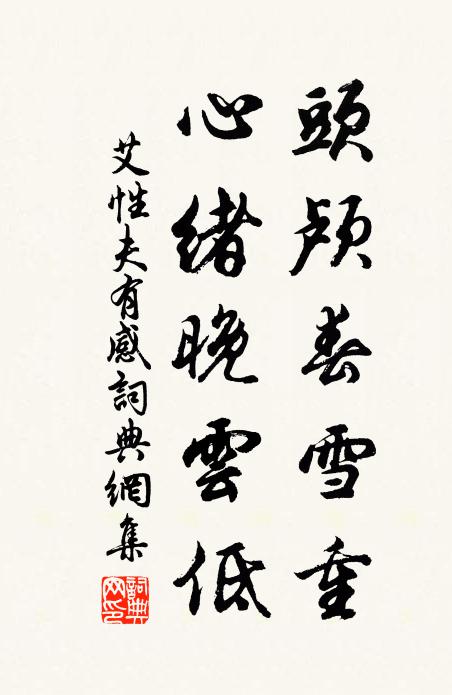 頭顱春雪重
心緒晚雲低
艾性夫有感詞典網集
詞典
網印